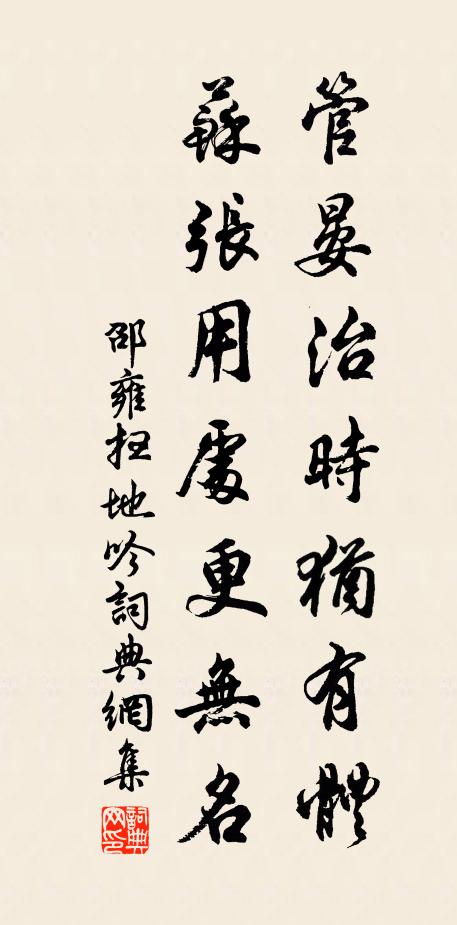 管晏治時猶有體
蘇張用處更無名
邵雍掃地吟詞典網集
詞典網印